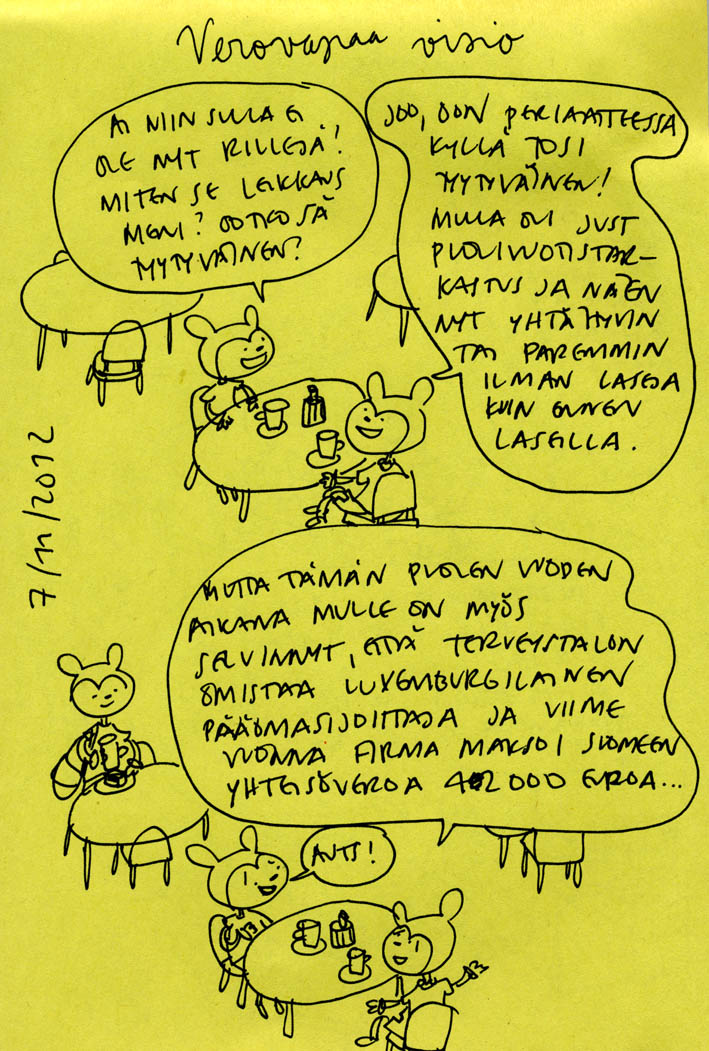 Verovapaa visio
AI NIIN SULLA EI
OLE NYT RILLEJÄ!
MITEN SE LEIKKAUS
MENI? OOTKO SÄ
TYYTYVÄINEN?
JOO, OON PERIAATTEESSA
KYLLÄ TOSI
TYYTYVÄINEN!
MULLA OLI JUST
PUOLIVUOTISTAR-
KASTUS JA NÄEN
NYT YHTÄ HYVIN
TAI PAREMMIN
ILMAN LASEJA
KUIN ENNEN
LASEILLA.
7/11/2012
MUTTA TÄMÄN PUOLEN VUODEN
AIKANA MULLE ON MYÖS
SELVINNYT, ETTÄ TERVEYSTALON
OMISTAA LUXEMBURGILAINEN
PÄÄOMASIJOITTAJA JA VIIME
VUONNA FIRMA MAKSOI SUOMEEN
YHTEISÖVEROA 402 000 EUROA...
AUTS!